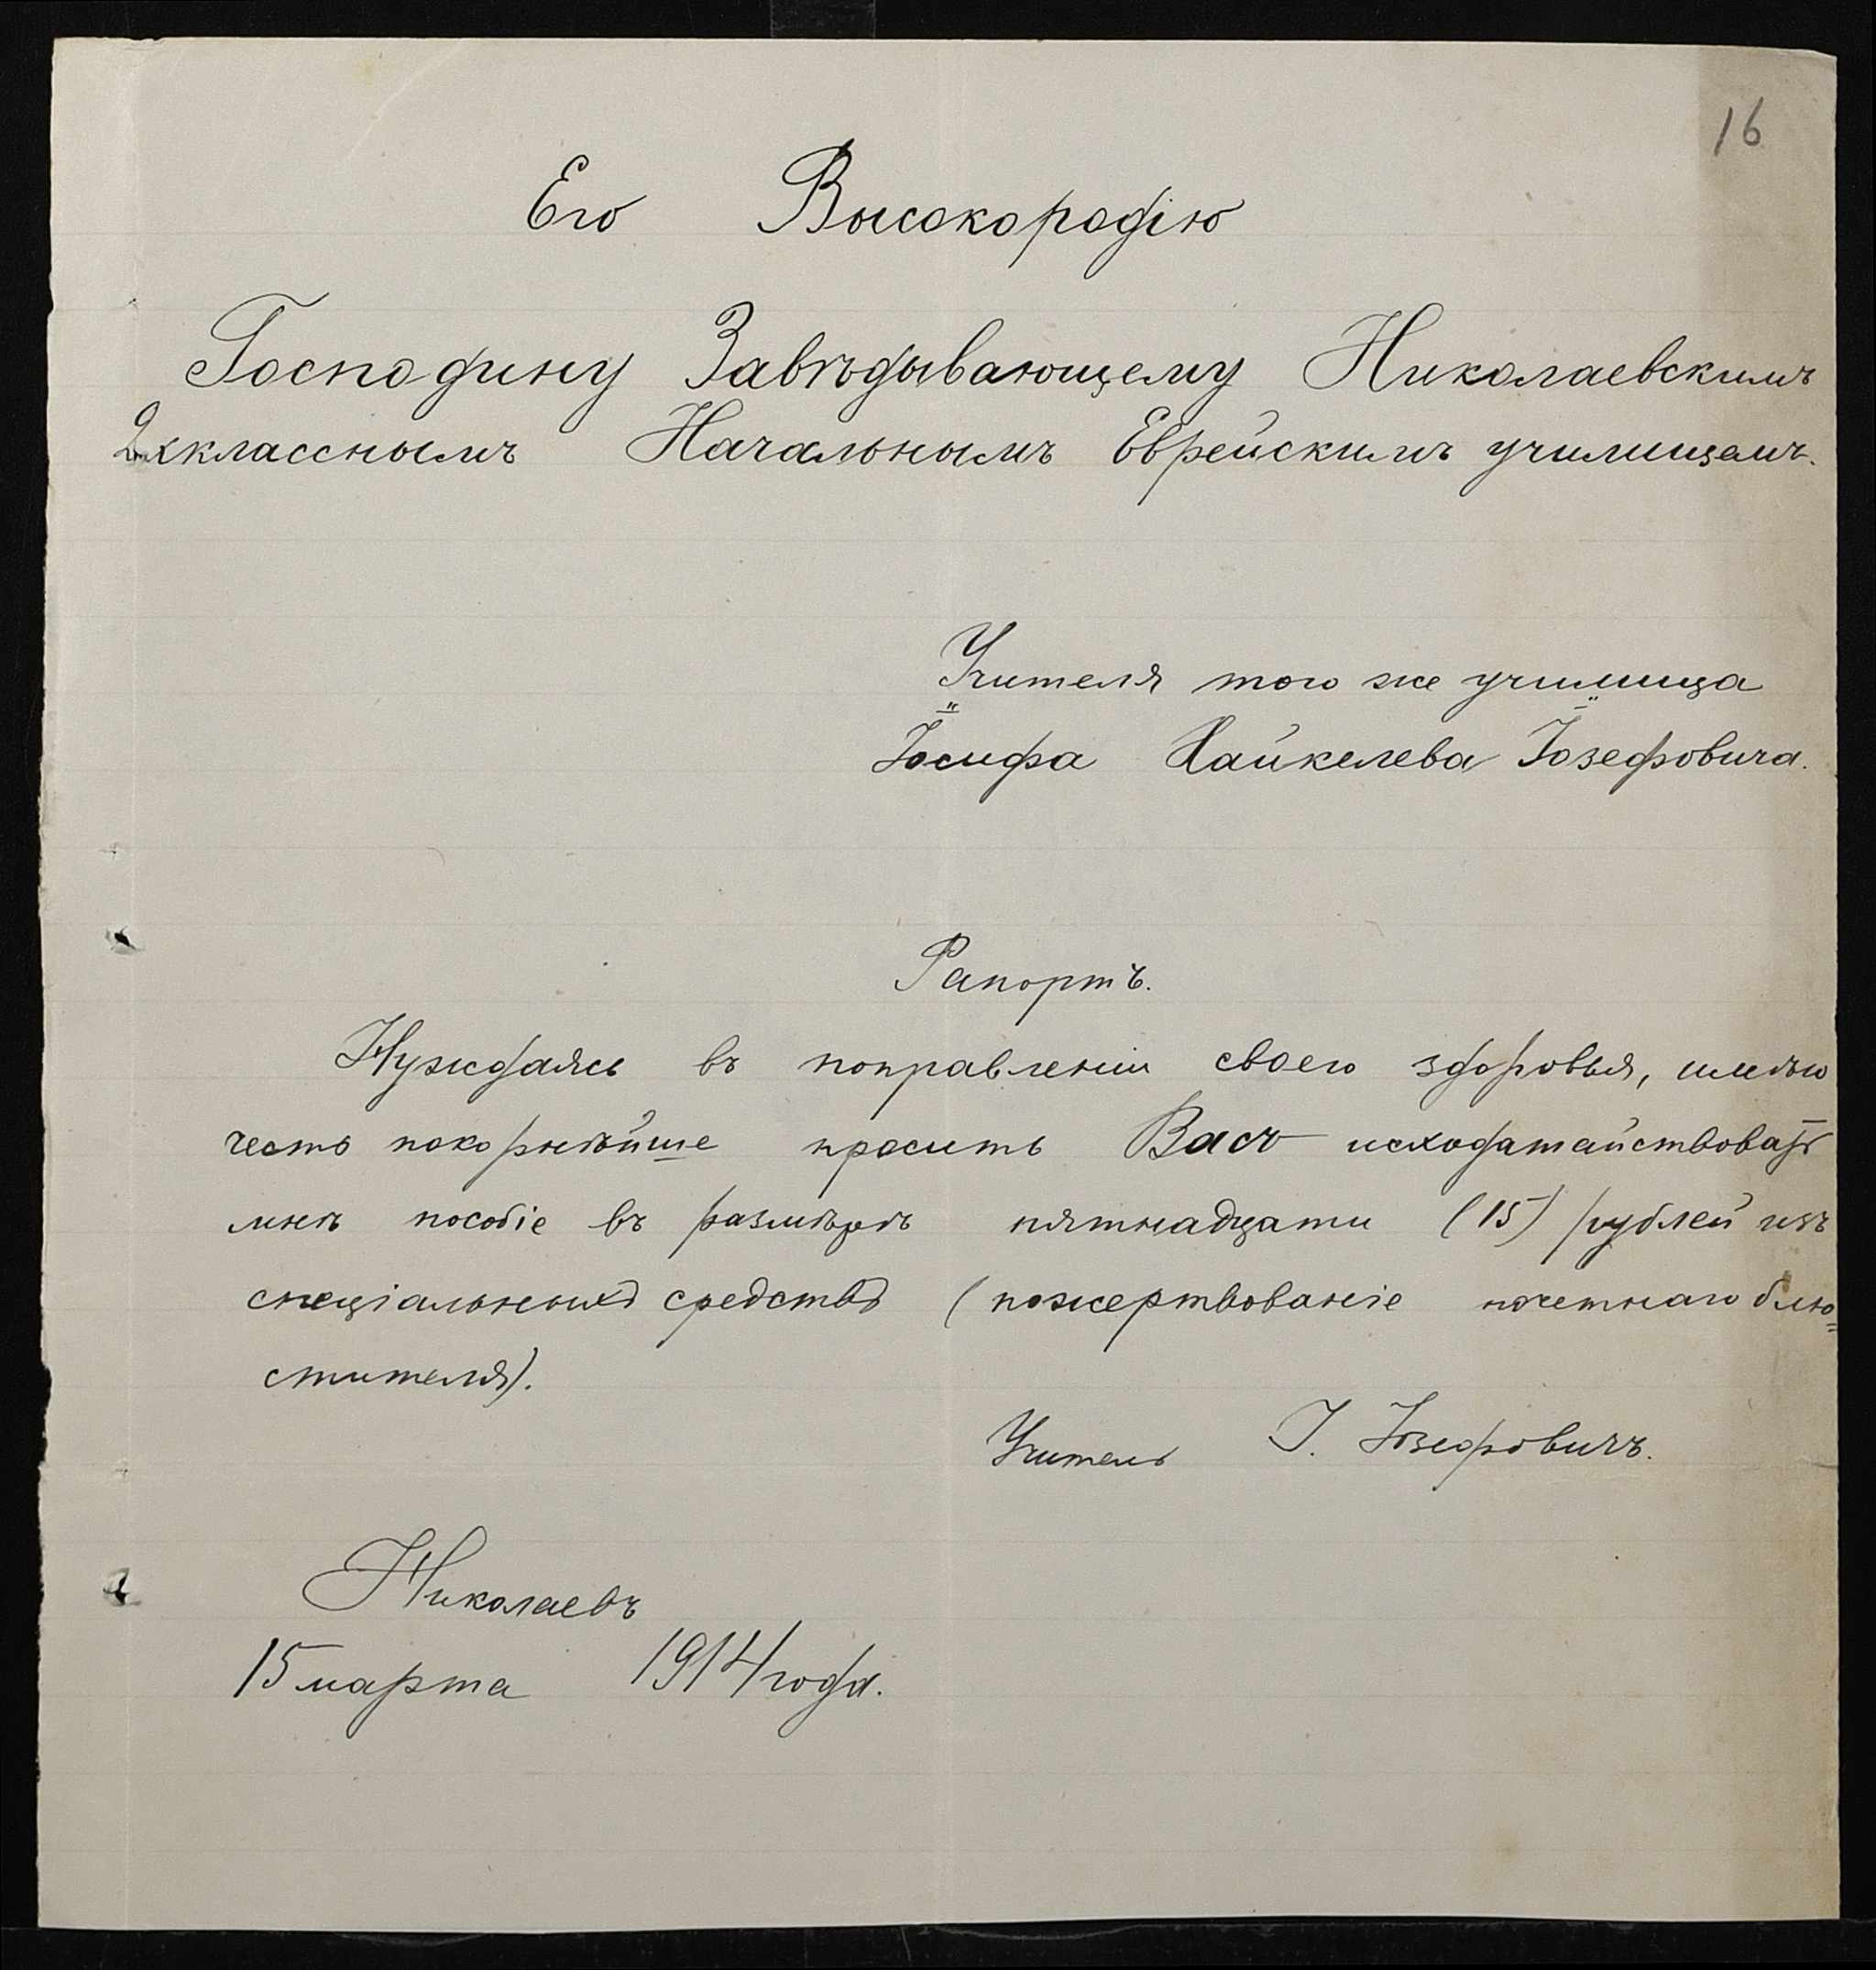 16
Его Высокородію
Господину Завѣдывающему Николаевскимъ
2хкласснымъ Начальнымъ Еврейскимъ училищемъ.
Учителя того же училища
Іосифа Хайкелева Іозефовича.
Рапортъ.
Нуждаясь въ поправленіи своего здоровья, имѣю
честь покорнѣйше просить Васъ исходатайствовать
мнѣ пособіе въ размѣрѣ пятнадцати (15) рублей изъ
спеціальныхъ средствъ (пожертвованіе почетнаго блю=
стителя).
Учитель І. Іозефовичъ.
Николаевъ
15 марта 1914 года.